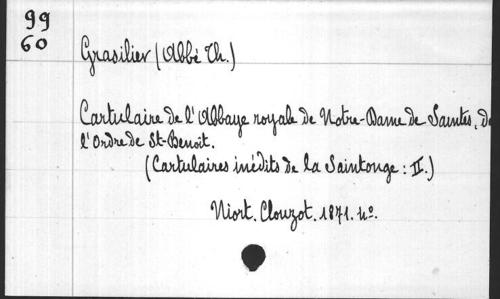 99
60
Grasilier (Abbé Th.)
Cartulaire de l'Abbaye royale de Notre-Dame de Saintes, de
l'Ordre de St-Benoît.
(Cartulaires inédits de la Saintonge : II.)
Niort. Clouzot. 1871. 4º.